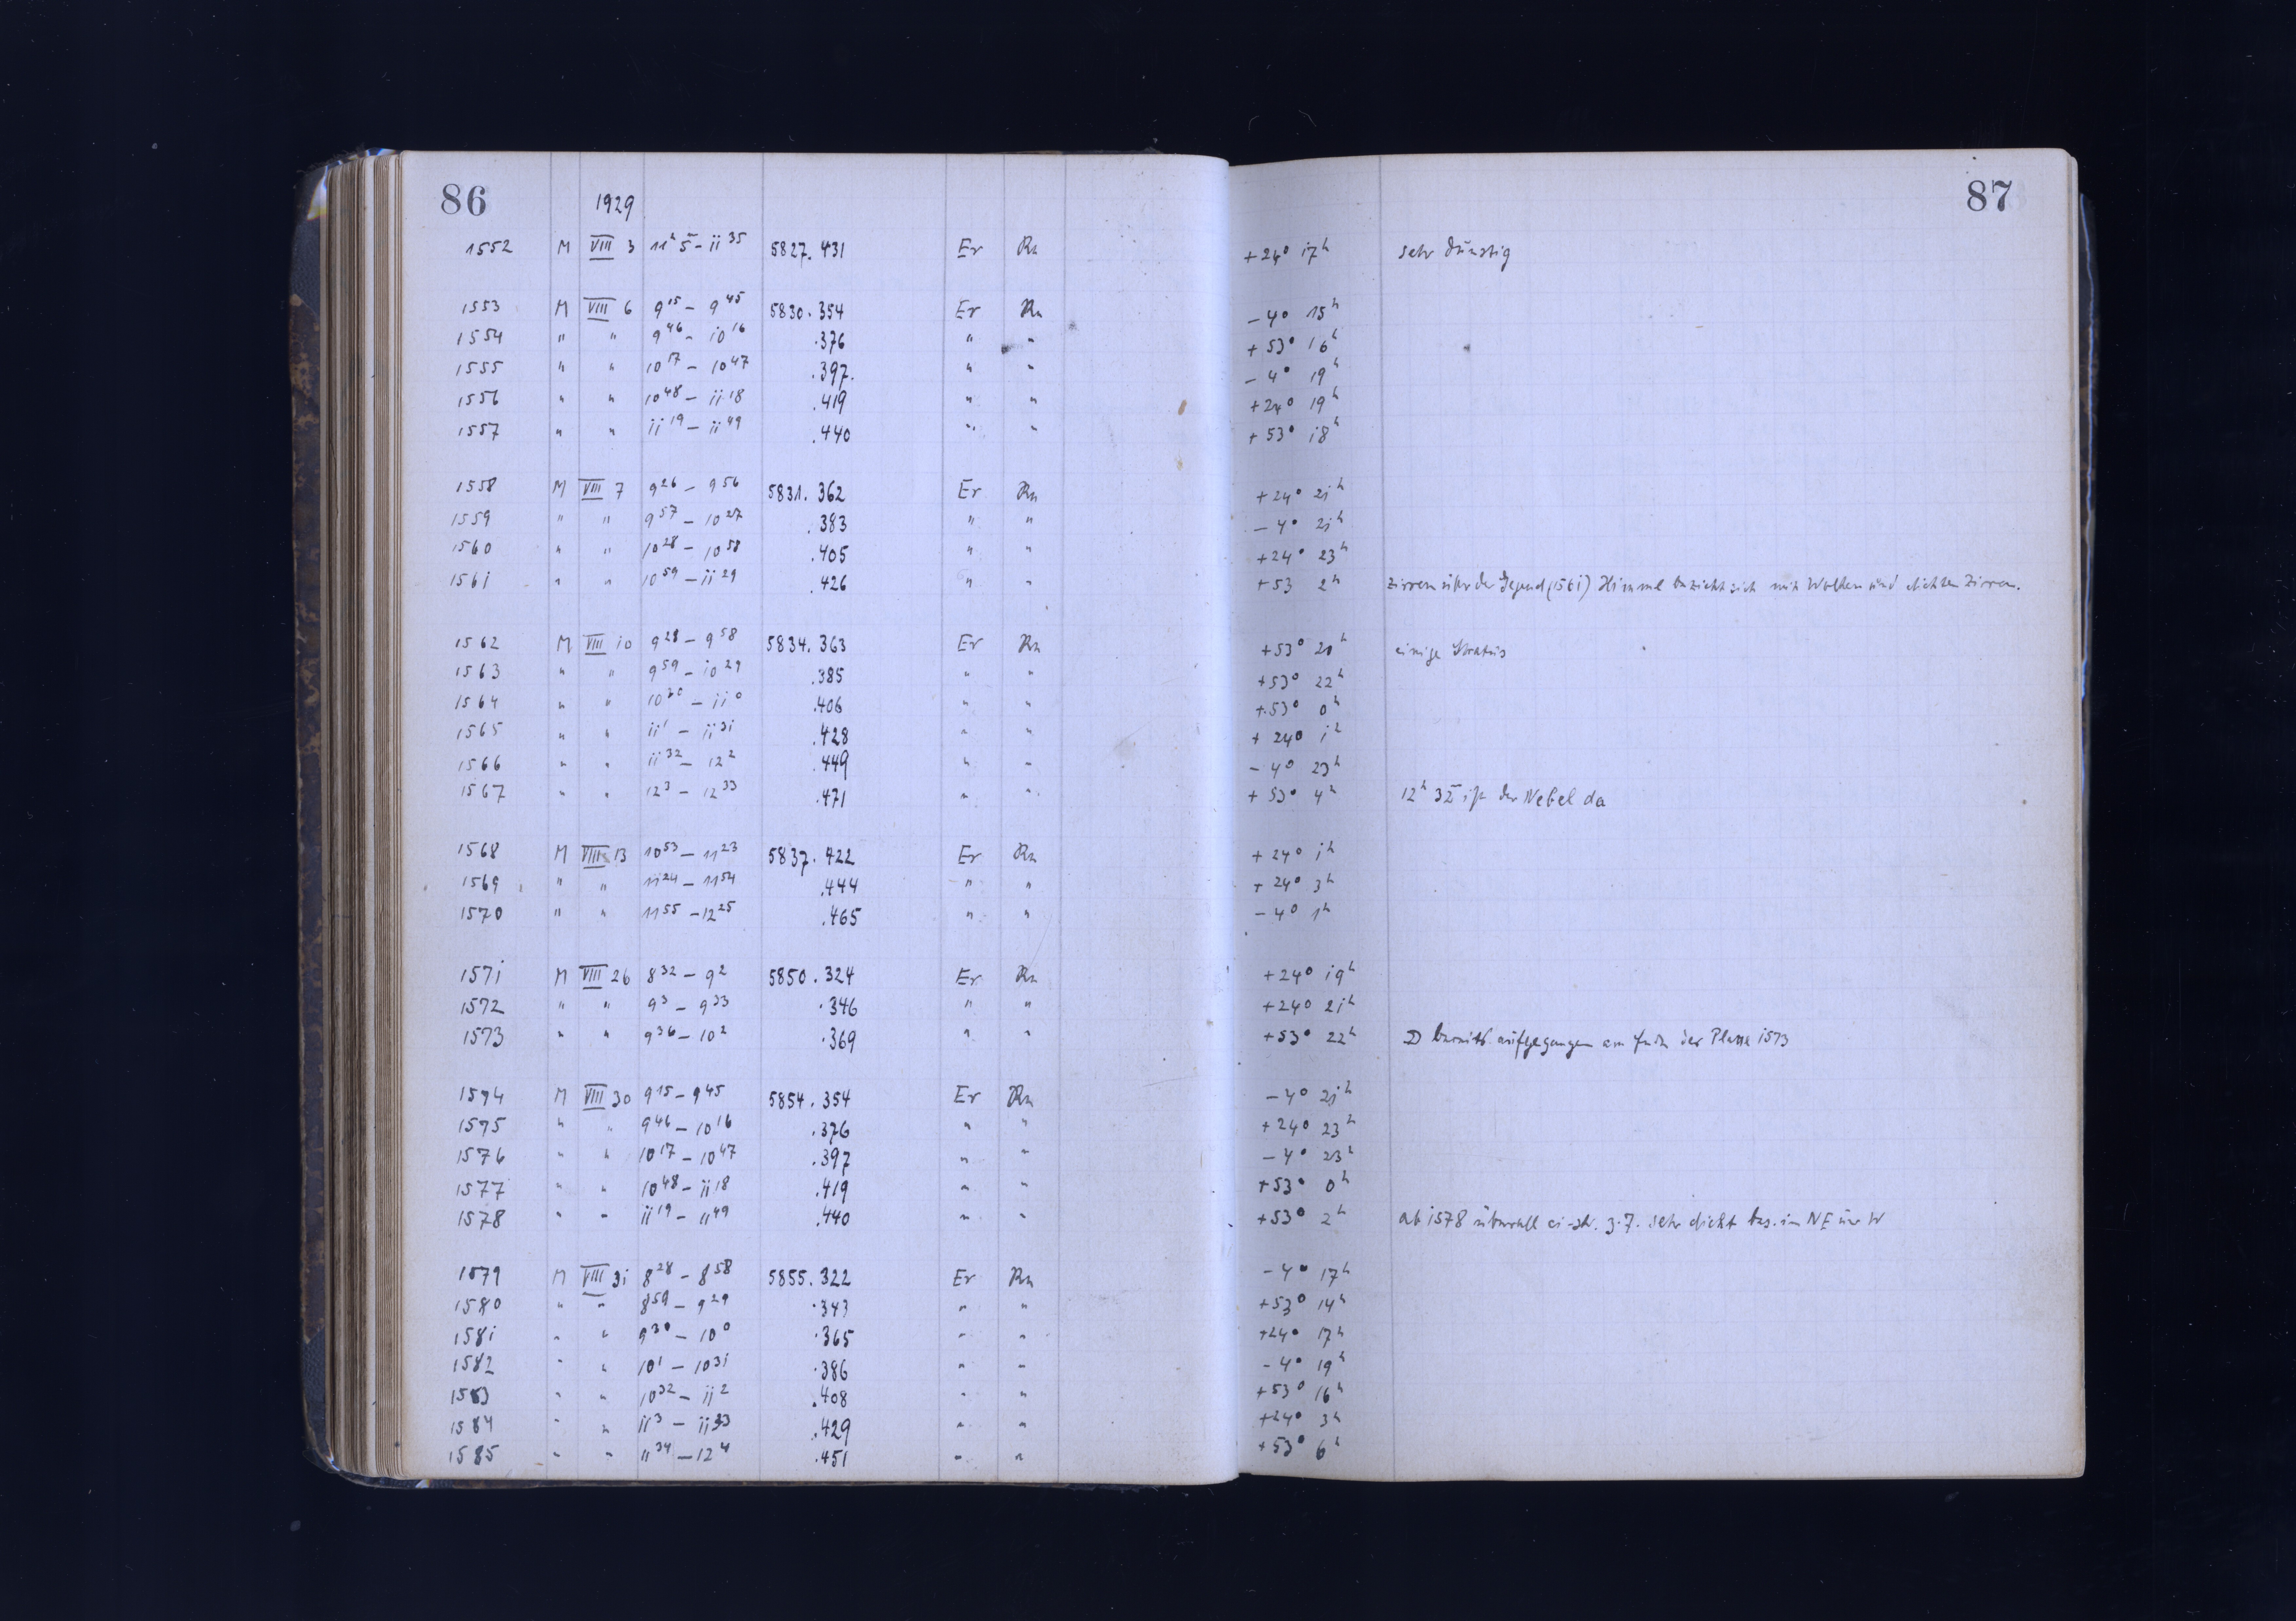 86 1929 87
1552 M VIII 3 11h 5m – 11 35 5827.431 Er Rn +24° 17h sehr dunstig
1553 M VIII 6 9 15 – 9 45 5830.354 Er Rn –4° 15h
1554 " " 9 46 – 10 16 .376 " " +53° 16h
1555 " " 10 17 – 10 47 .397 " " –4° 19h
1556 " " 10 48 – 11 18 .419 " " +24° 19h
1557 " " 11 19 – 11 49 .440 " " +53° 18h
1558 M VIII 7 9 26 – 9 56 5831.362 Er Rn +24° 21h
1559 " " 9 57 – 10 27 .383 " " –4° 21h
1560 " " 10 28 – 10 58 .405 " " +24° 23h
1561 " " 10 59 – 11 29 .426 " " +53 2h Zirren über der Gegend (1561) Himmel bezieht sich mit Wolken und dichten Zirren.
1562 M VIII 10 9 28 – 9 58 5834.363 Er Rn +53° 20h einige Stratus
1563 " " 9 59 – 10 29 .385 " " +53° 22h
1564 " " 10 30 – 11 0 .406 " " +53° 0h
1565 " " 11 1 – 11 31 .428 " " +24° 1h
1566 " " 11 32 – 12 2 .449 " " –4° 23h
1567 " " 12 3 – 12 33 .471 " " +53° 4h 12h 32m ist der Nebel da
1568 M VIII 13 10 53 – 11 23 5837.422 Er Rn +24° 1h
1569 " " 11 24 – 11 54 .444 " " +24° 3h
1570 " " 11 55 – 12 25 .465 " " –4° 1h
1571 M VIII 26 8 32 – 9 2 5850.324 Er Rn +24° 19h
1572 " " 9 3 – 9 33 .346 " " +24° 21h
1573 " " 9 36 – 10 2 .369 " " +53° 22h ☽ bereits aufgegangen am Ende der Platte 1573
1574 M VIII 30 9 15 – 9 45 5854.354 Er Rn –4° 21h
1575 " " 9 46 – 10 16 .376 " " +24° 23h
1576 " " 10 17 – 10 47 .397 " " –4° 23h
1577 " " 10 48 – 11 18 .419 " " +53° 0h
1578 " " 11 19 – 11 49 .440 " " +53° 2h ab 1578 überall ci-str. z.T. sehr dicht bes. im NE und W
1579 M VIII 31 8 28 – 8 58 5855.322 Er Rn –4° 17h
1580 " " 8 59 – 9 29 .343 " " +53° 14h
1581 " " 9 30 – 10 0 .365 " " +24° 17h
1582 " " 10 1 – 10 31 .386 " " –4° 19h
1583 " " 10 32 – 11 2 .408 " " +53° 16h
1584 " " 11 3 – 11 33 .429 " " +24° 3h
1585 " " 11 34 – 12 4 .451 " " +53° 6h